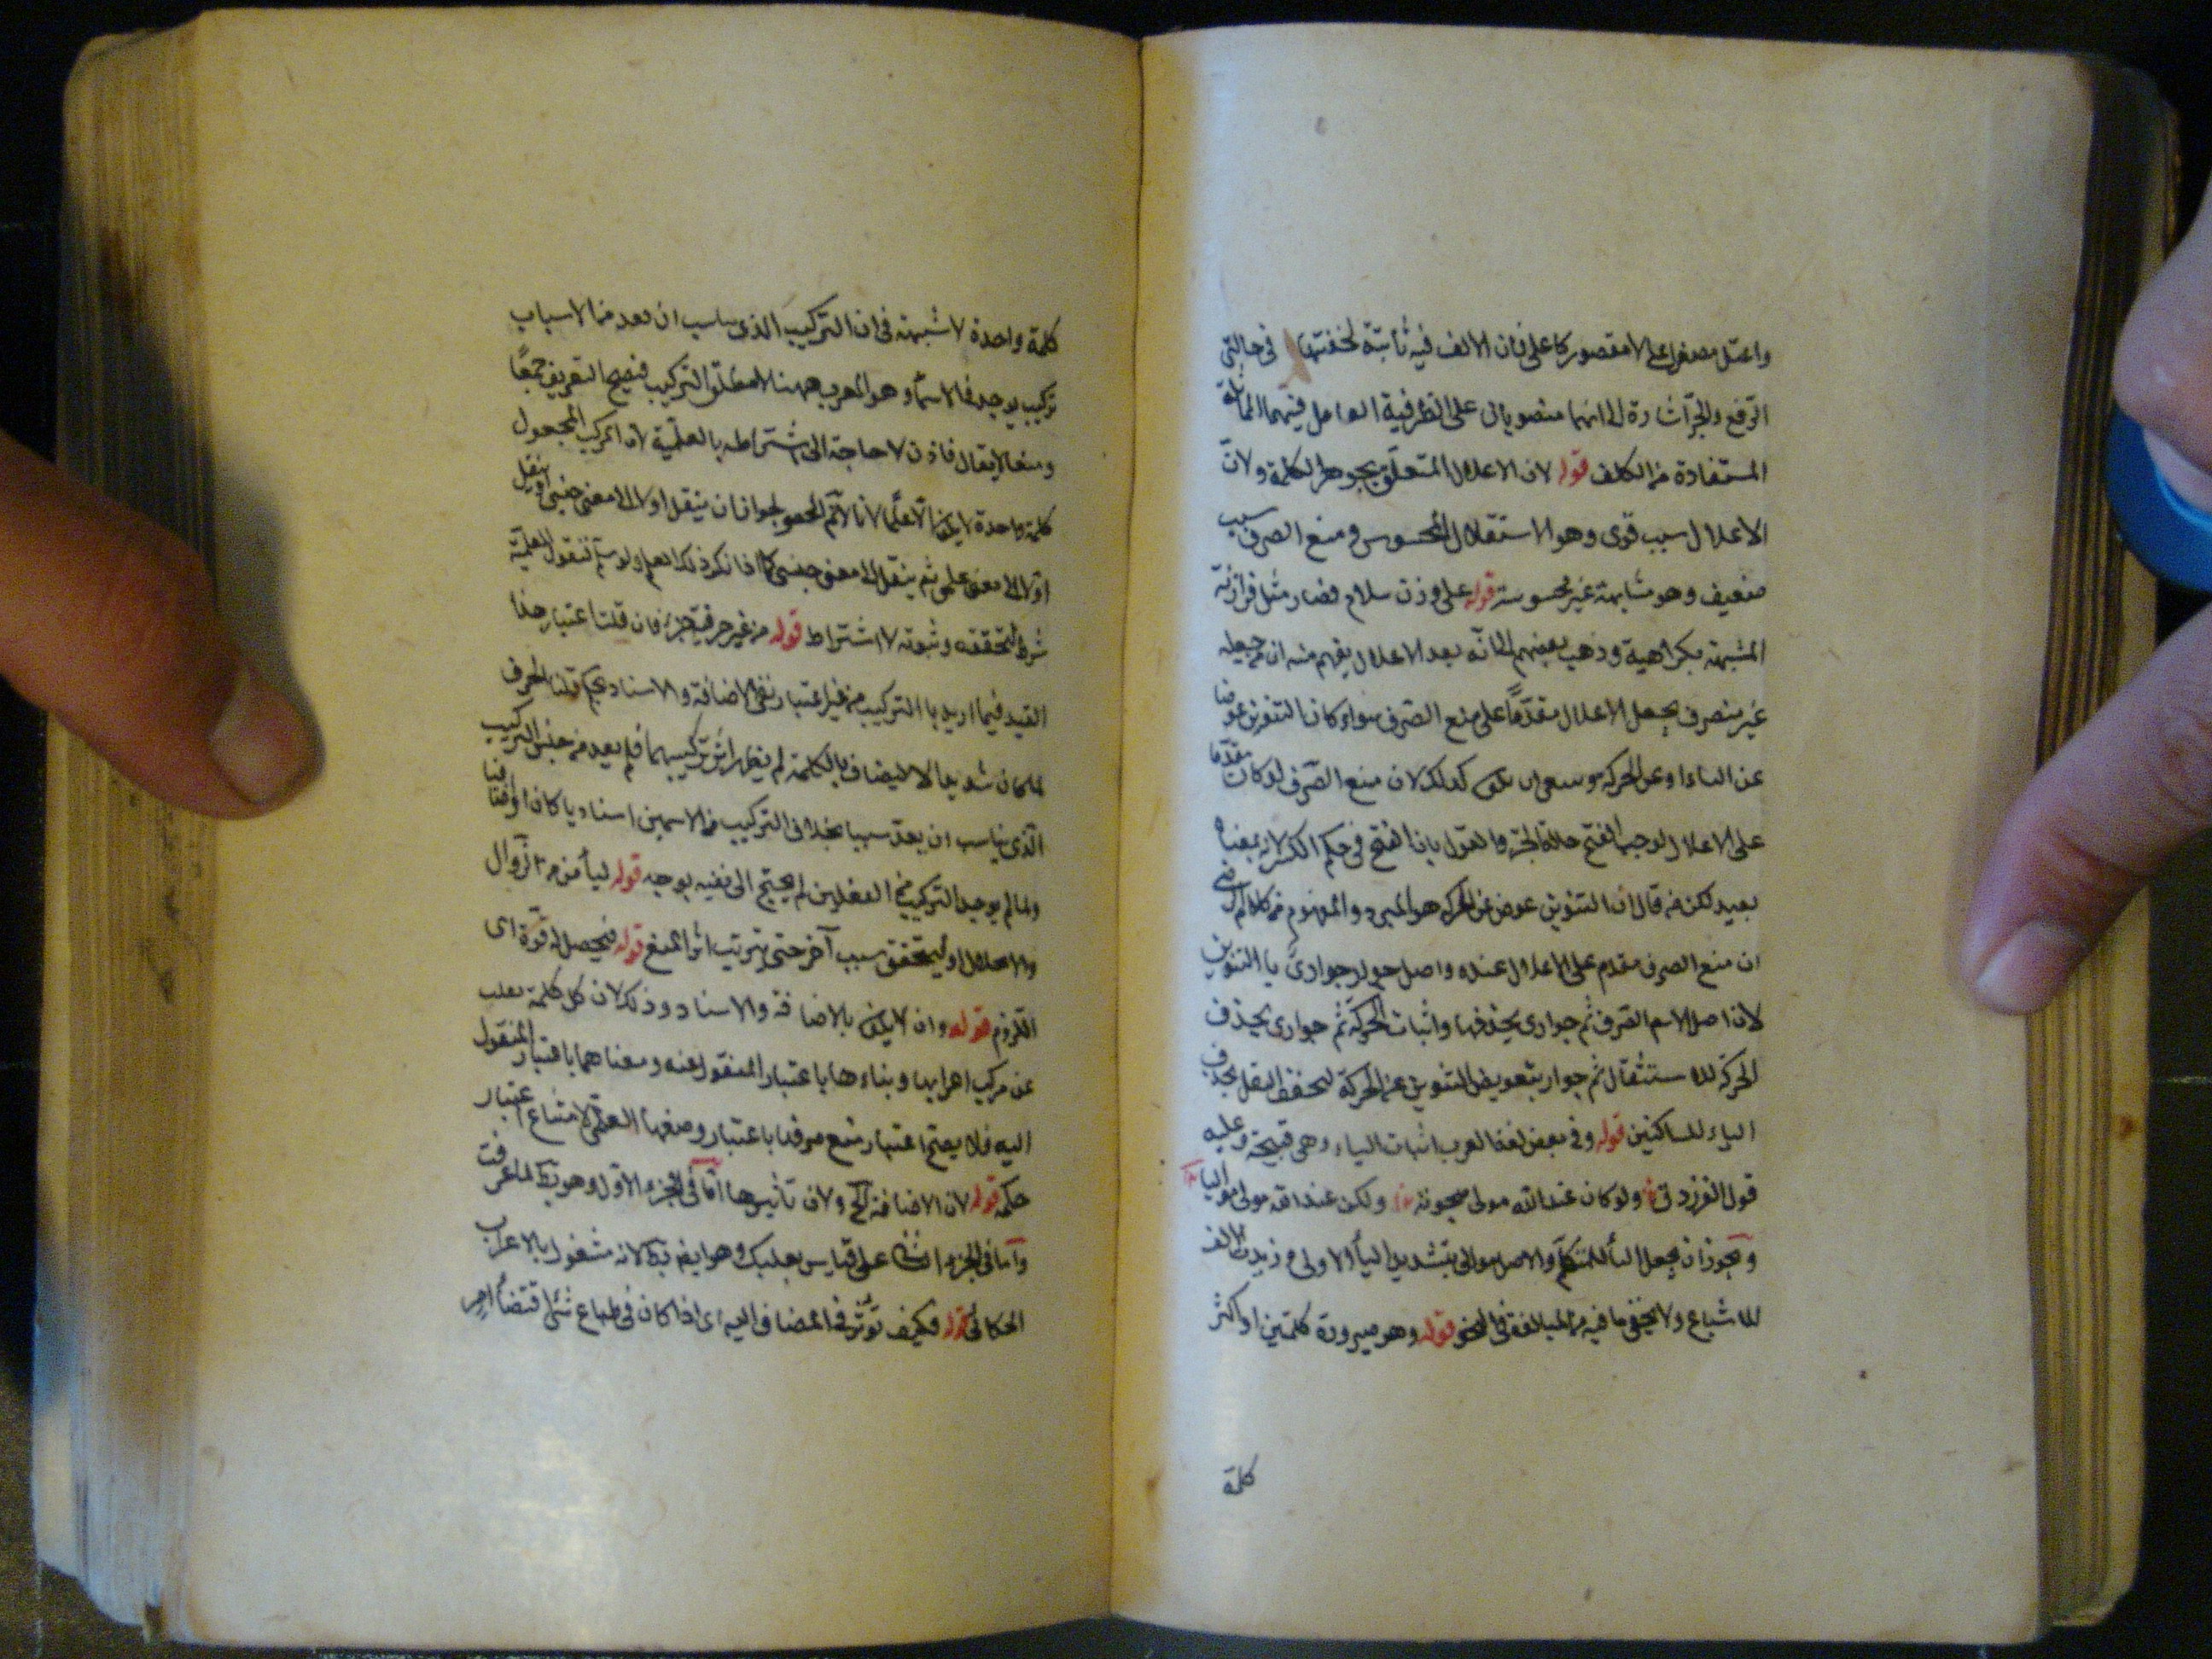 واعتل مصغر اعلى لا مقصور كاعلى فان الالف فيه ثابتة لخفتها في حالتي
الرفع والجر اشارة الى انهما منصوبان على الظرفية العامل فيهما المماثلة
المستفادة من الكاف قوله لان الاعلال المتعلق بجوهر الكلمة ولان
الاعلال سبب قوى وهو الاستثقال المحسوس ومنع الصرف سبب
ضعيف وهو مشابهة غير محسوسة قوله على وزن سلام فصار مثل فرازنة
المشبهة بكراهية وذهب بعضهم الى انه بعد الاعلال يفهم منه ان من جعله
غير منصرف يجعل الاعلال مقدما على منع الصرف سواء كان التنوين عوضا
عن الياء او عن الحركة وينبغى ان يكون كذلك لان منع الصرف لو كان مقدما
على الاعلال لوجب الفتح حالة الجر والقول بان الفتح في حكم الكسر لانه بمعناه
بعيد لكن من قال ان التنوين عوض عن الحركة هو المبرد والمفهوم من كلام الرضي
ان منع الصرف مقدم على الاعلال عنده واصل جوار جوارى يا التنوين
لان اصل الاسم الصرف ثم جوارى بحذفها واثبات الحركة ثم جوارى بحذف
الحركة للاستثقال ثم جوار بتعويض التنوين عن الحركة لتخفف الثقل بحذف
الياء للساكنين قوله وفي بعض لغة العرب اثبات الياء وهى قبيحة وعليه
قول الفرزدق ولو كان عبد الله مولى هجوته ولكن عبد الله مولى مواليا
ويجوز ان يجعل اليأ للمتكلم والاصل موالى بتشديد اليأ الاولى زيدت الالف
للاشباع ولا يخفى ما فيه من المبالغة في الهجو قوله وهو صيرورة كلمتين او اكثر
كلمة
كلمة واحدة لا شبهة في ان التركيب الذى يناسب ان يعد من الاسباب
تركيب يوجد في الاسماء وهو المعرب ههنا لا مطلق التركيب فيصح التعريف جمعا
ومنعا لا يقال فاذن لا حاجة الى اشتراطه بالعلمية لان المركب المجعول
كلمة واحدة لا يكون الا علما لانا لا نم الحصر لجواز ان ينقل اولا الى معنى جنسى او ينقل
اولا الى معنى علمى ثم ينقل الى معنى جنسى كما اذا نكر ذلك العلم ولو سلم فنقول العلمية
شرط لتحققه وثبوته لا اشتراط قوله من غير حرفية جزء فان قلت اعتبار هذا
القيد فيما اريد بالتركيب من غير اعتبار نفى الاضافة والاسناد تحكم قلنا الحرف
لما كان شديد الاتصاف بالكلمة لم يظهر اثر تركيبهما فلم يعد من جنس التركيب
الذى يناسب ان يعد سببا بخلاف التركيب من الاسمين اسناديا كان او اضافيا
ولما لم يوجد التركيب من الفعلين لم يحتج الى نفيه بوجه قوله ليأمن من الزوال
والانحلال او ليتحقق سبب آخر حتى يترتب اثر المنع قوله فيحصل له قوة اى
اللزوم قوله وان لا يكون بالاضافة والاسناد وذلك لان كل كلمة
عن مركب اعرابها وبناءها باعتبار المنقول عنه ومعناها باعتبار المنقول
اليه فلا يصح اعتبار منع صرفها باعتبار وصفها العلمى لامتناع اعتبار
حكمه قوله لان الاضافة الخ ولان تأثيرها اما في الجزء الاول وهو بط لما عرفت
واما في الجزء الثانى على قياس بعلبك وهو ايضا بط لانه مشغول بالاعراب
الحكائى قوله فكيف تؤثر في المضاف اليه اى اذا كان في طباع شئ اقتضأ امر